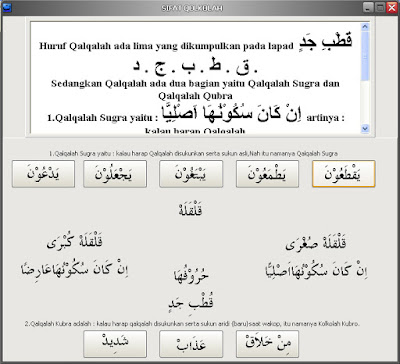 SIFAT QOLKOLAH
Huruf Qalqalah ada lima yang dikumpulkan pada lapad قَطْبِ جَدٍ
. ق . ط . ب . ج . د
Sedangkan Qalqalah ada dua bagian yaitu Qalqalah Sugra dan
Qalqalah Qubra
1.Qalqalah Sugra yaitu : اِنْ كَانَ سُكُوْنُهَا اَصْلِيًّا artinya :
kalau harap Qalqalah
1.Qalqalah Sugra yaitu : kalau harap Qalqalah disukunkan serta sukun asli,Nah itu namanya Qalqalah Sugra
يَقْطَعُوْنَ يَطْمَعُوْنَ يَبْتَغُوْنَ يَجْعَلُوْنَ يَدْعُوْنَ
قَلْقَلَهْ
قَلْقَلَهْ صُغْرَى
اِنْ كَانَ سُكُوْنُهَااَصْلِيًّا
قَلْقَلَهْ كُبْرَى
اِنْ كَانَ سُكُوْنُهَاعَارِضًا
حُرُوْفُهَا
قُطْبِ جَدٍ
2.Qalqalah Kubra adalah : kalau harap qakqalah disukunkan serta sukun aridi (baru)saat wakop, itu namanya Kolkolah Kubro.
مِنْ خَلَاقْ عَذَابْ شَدِيدْ